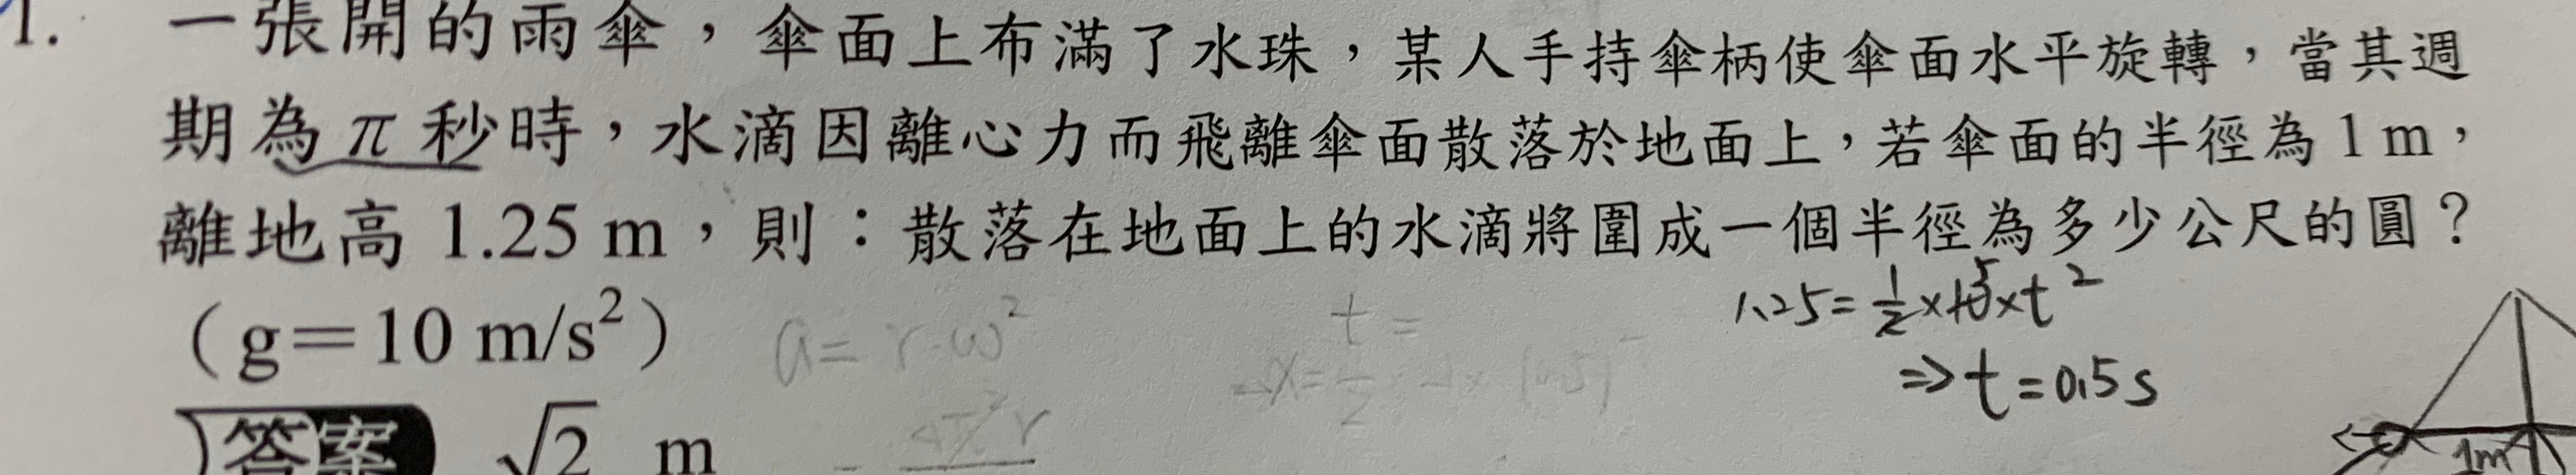 1. 一張開的雨傘，傘面上布滿了水珠，某人手持傘柄使傘面水平旋轉，當其週
期為 π 秒時，水滴因離心力而飛離傘面散落於地面上，若傘面的半徑為 1 m，
離地高 1.25 m，則：散落在地面上的水滴將圍成一個半徑為多少公尺的圓？
（g＝10 m/s²）
a = r·ω²
t =
1.25 = 1/2 × 10 5 × t²
⇒ t = 0.5 s
答案 √2 m
4π²r
1m